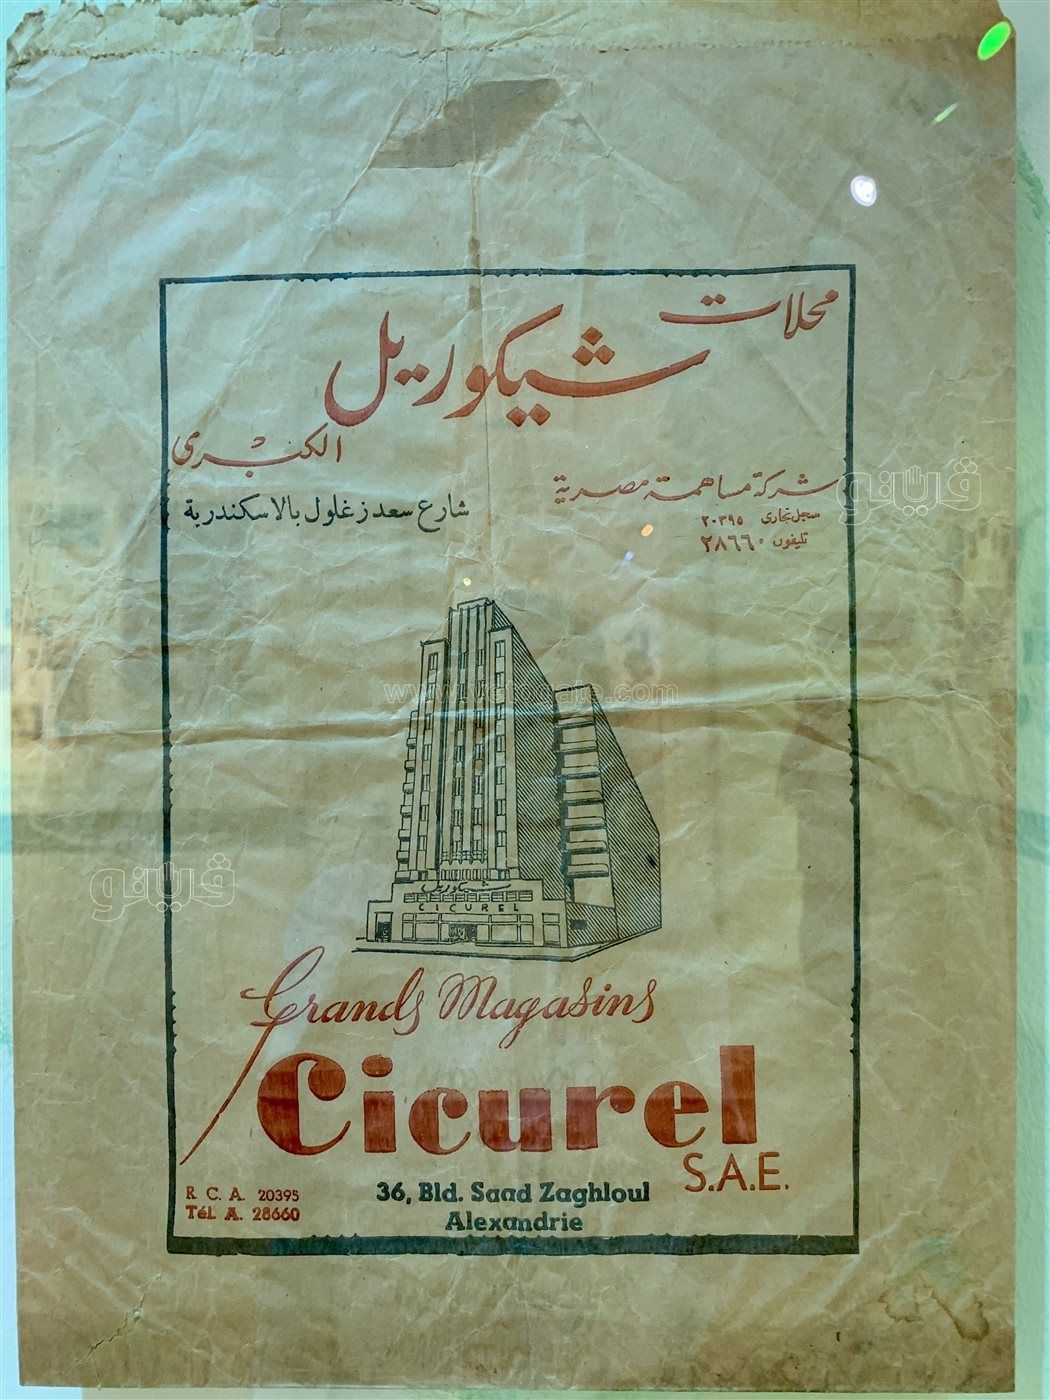 محلات
شيكوريل
الكبرى
شركة مساهمة مصرية
سجل تجارى ٢٠٣٩٥
تليفون ٢٨٦٦٠
شارع سعد زغلول بالاسكندرية
شيكوريل
CICUREL
Grands Magasins
Cicurel
S.A.E.
R. C. A. 20395
Tél. A. 28660
36, Bld. Saad Zaghloul
Alexandrie
ڤيتو
ڤيتو